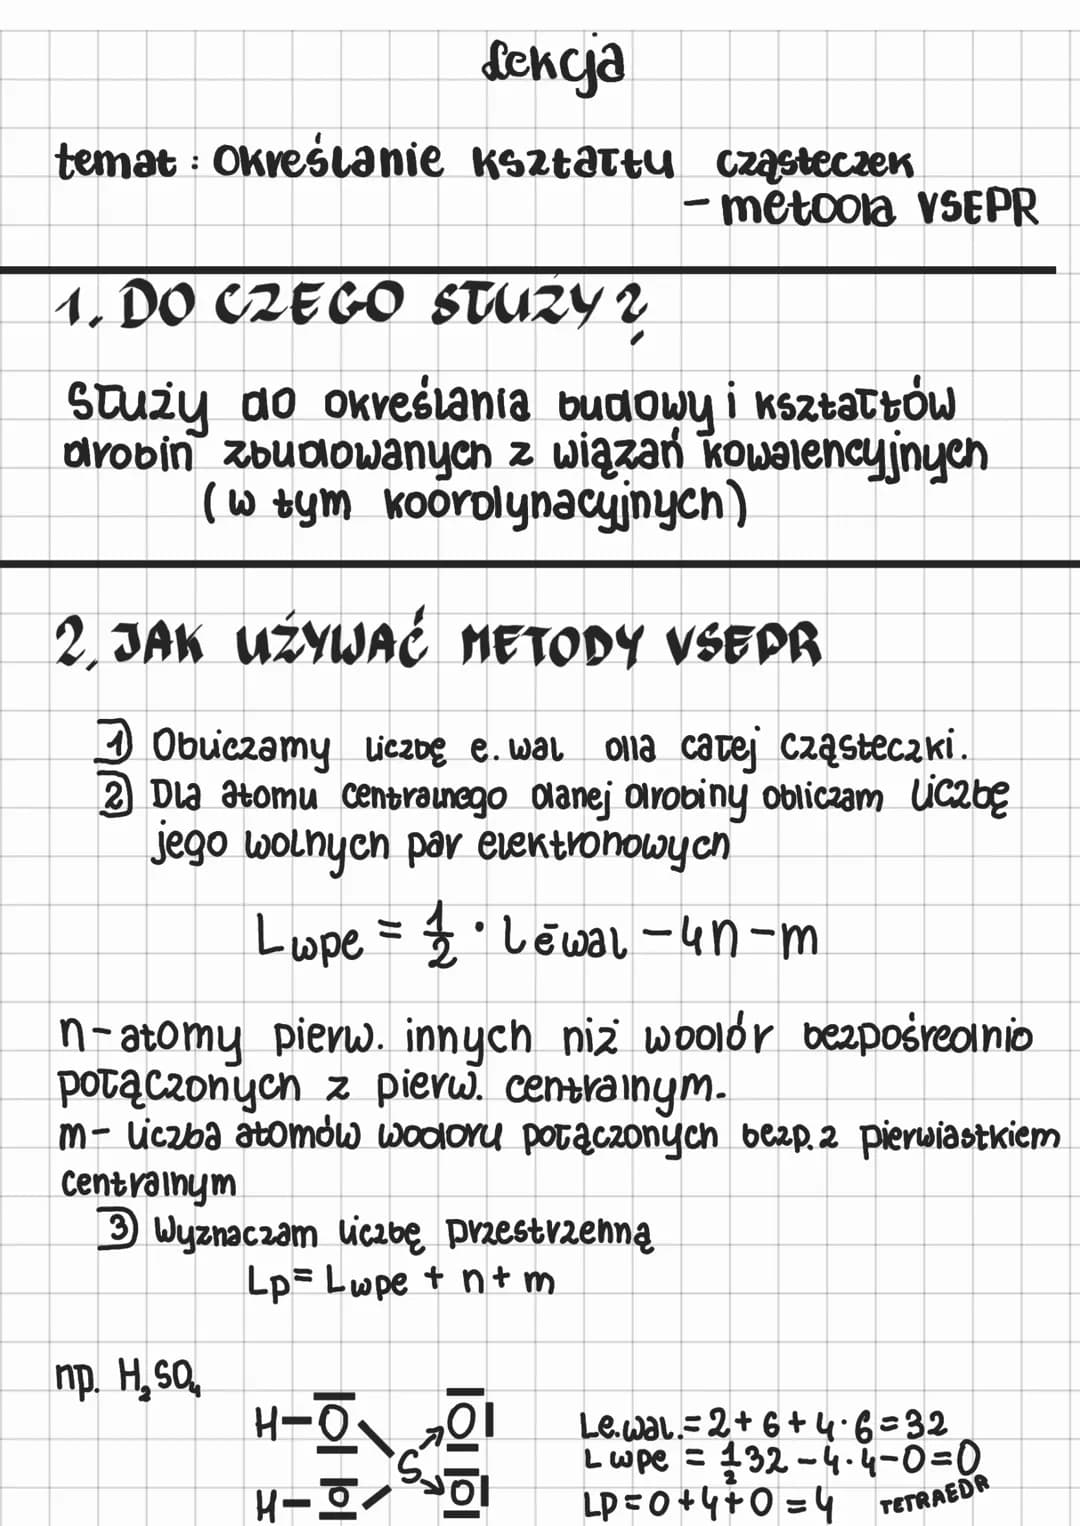 Lekcja
temat : Określanie kształtu cząsteczek
- metoda VSEPR
1. DO CZEGO SŁUŻY?
Służy do określania budowy i kształtów
drobin zbudowanych z wiązań kowalencyjnych
(w tym koordynacyjnych)
2. JAK UŻYWAĆ METODY VSEPR
1) Obliczamy liczbę e. wal dla całej cząsteczki.
2) Dla atomu centralnego danej drobiny obliczam liczbę
jego wolnych par elektronowych
Lwpe = 1/2 · Lēwal - 4n - m
n - atomy pierw. innych niż wodór bezpośrednio
połączonych z pierw. centralnym.
m - liczba atomów wodoru połączonych bezp. z pierwiastkiem
centralnym
3) Wyznaczam liczbę przestrzenną
Lp = Lwpe + n + m
np. H₂SO₄
H-O O
S
H-O O
Le.wal. = 2 + 6 + 4·6 = 32
Lwpe = 1/2 32 - 4·4 - 0 = 0
LP = 0 + 4 + 0 = 4 TETRAEDR